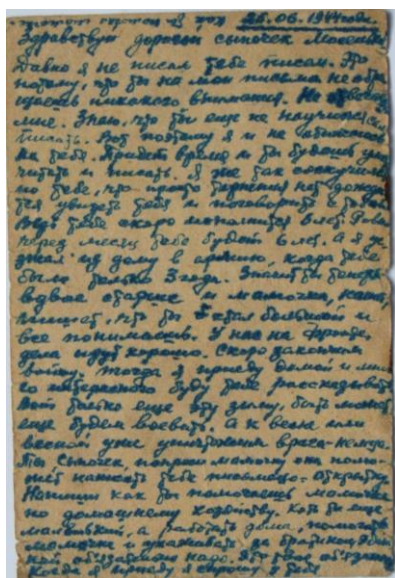 26.06.1944 года
Здравствуй дорогой сыночек
Давно я не писал тебе писем. Это
потому, что ты на мои письма не обра
щаешь никакого внимания. Не
мне. Знаю, что ты еще не научился
писать. Вот поэтому я и не обижаюсь
на тебя. Придет время и ты будешь
читать и писать. Я же так соскучился
по тебе, что просто терпения нет дожда
тся увидеть тебя и поговорить с тобой.
Ведь тебе скоро исполнится 6 лет. Ровно
через месяц тебе будет 6 лет. а я уе
хал из дому в армию, когда тебе
было только 3 года. Значит ты теперь
вдвое старше и мамочка,
пишет, что ты стал большой и
все понимаешь. У нас на фронте
дела идут хорошо. Скоро закончим
войну. тогда я приеду домой и мно
го интересного буду тебе рассказывать
Вот только еще эту зиму, быть может
еще будем воевать. а к весне или
весной уже уничтожим врага-немца.
Ты, сыночек, попроси мамочку она помо
жет написать тебе письмецо-открытку
Напиши как ты помогаешь мамочке
по домашнему хозяйству. Хоть ты еще
маленький, а работать дома, помогать
мамочке и ухаживать за братиком
обязательно надо. Это твоя
Когда я приеду я спрошу у тебя